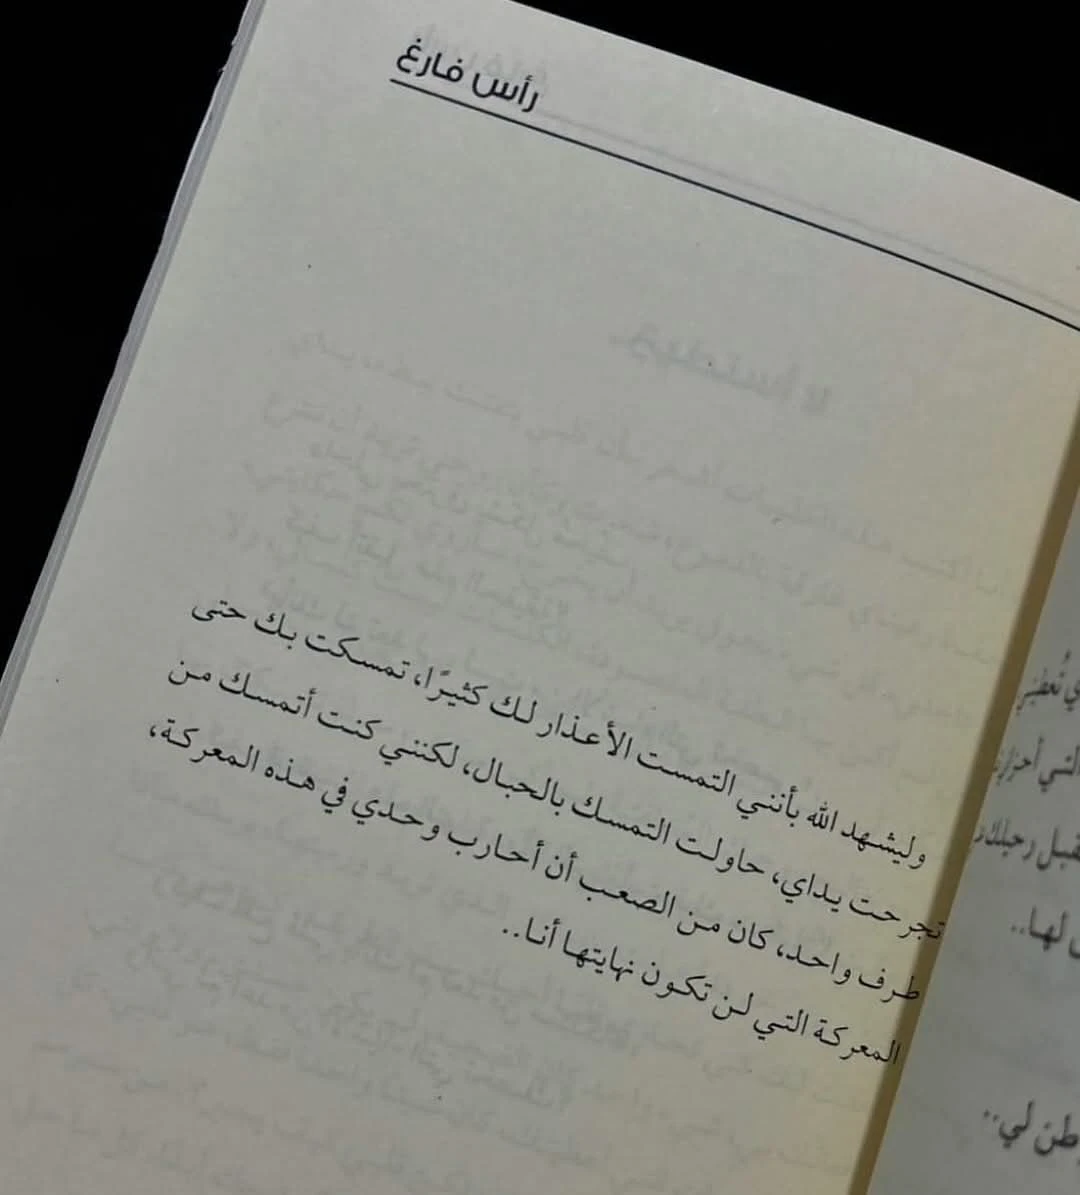 رأس فارغ
وليشهد الله بأنني التمست الأعذار لك كثيرًا، تمسكت بك حتى
تجرحت يداي، حاولت التمسك بالحبال، لكنني كنت أتمسك من
طرف واحد، كان من الصعب أن أحارب وحدي في هذه المعركة،
المعركة التي لن تكون نهايتها أنا..
التي أحزاني
رحيلك
لها..
لي..